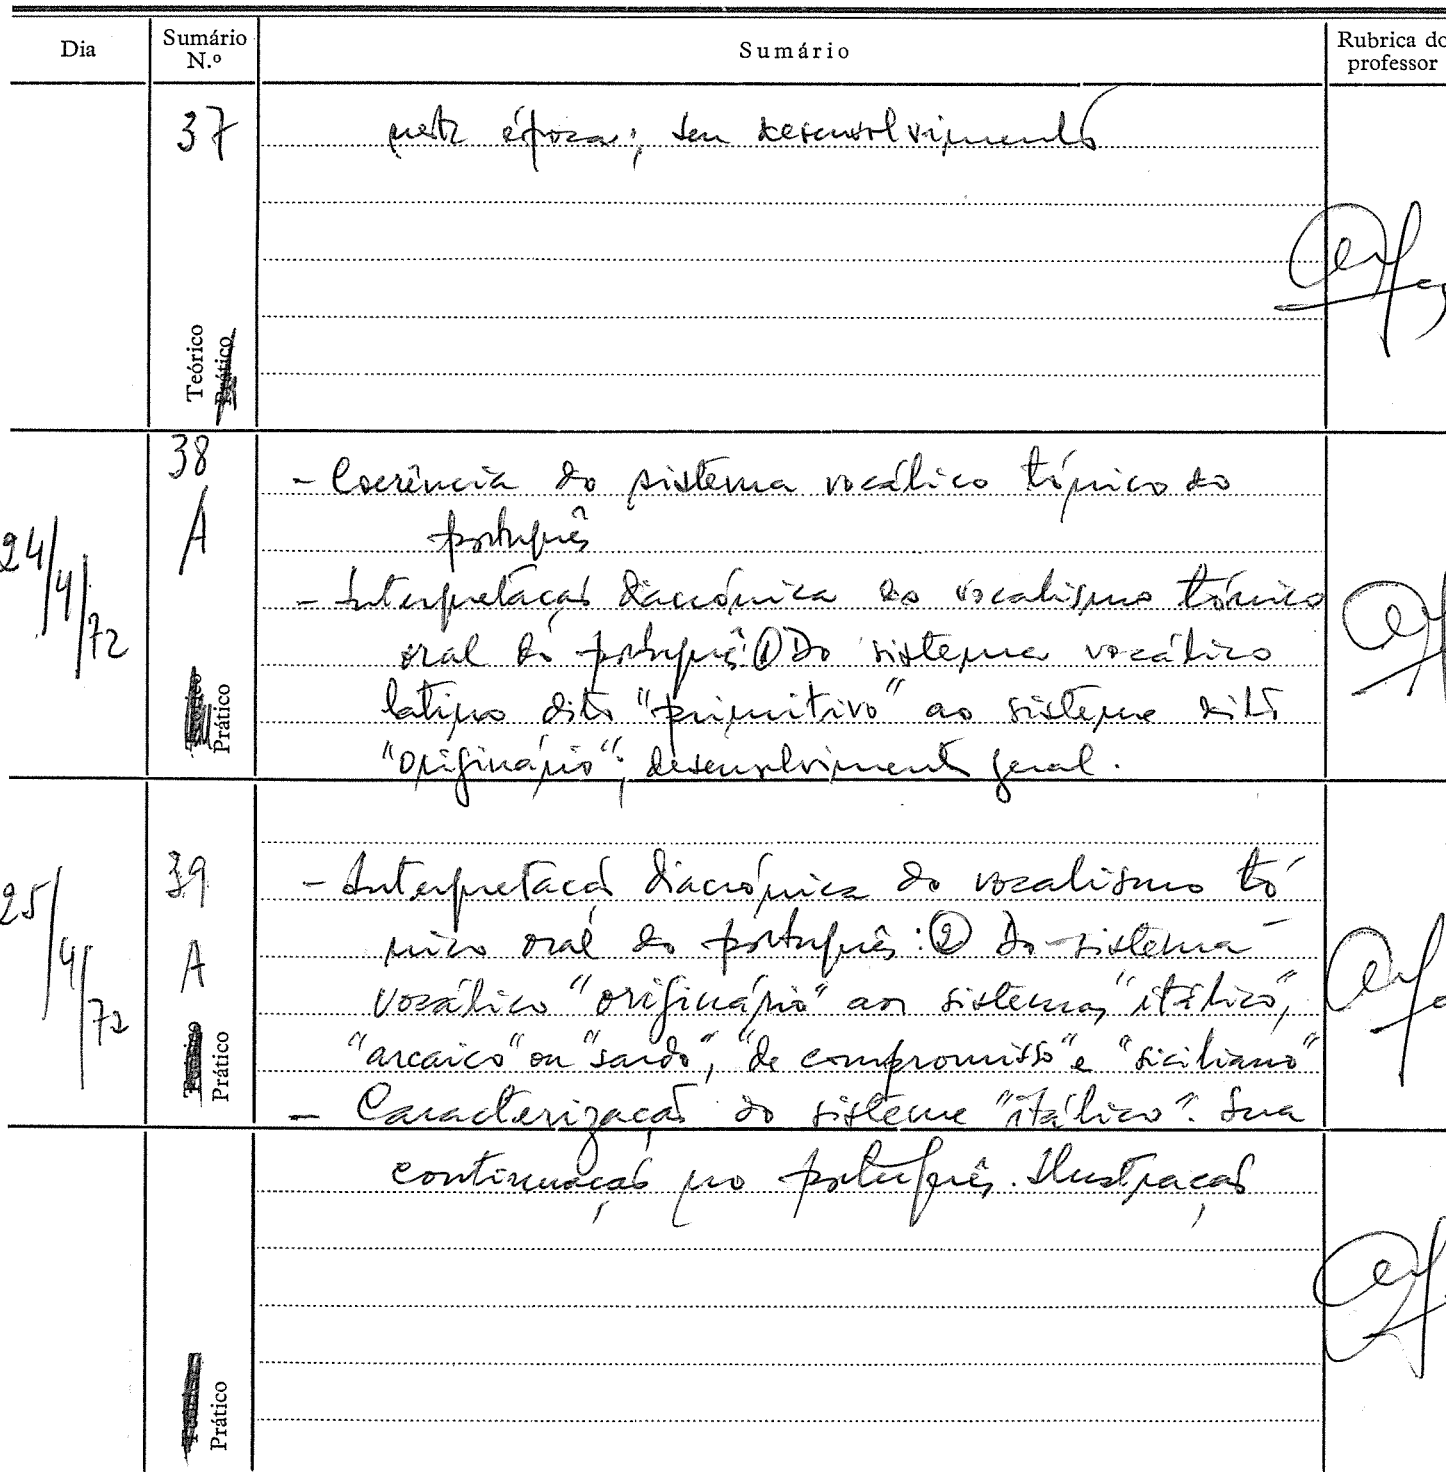 Dia
Sumário N.º
Sumário
Rubrica do professor
37
nesta época; seu desenvolvimento
Teórico
Prático
38
A
24/4/72
- Coerência do sistema vocálico tónico do
português
- Interpretação diacrónica do vocalismo tónico
oral do português: ① Do sistema vocálico
latino dito "primitivo" ao sistema dito
"originário"; desenvolvimento geral.
Teórico
Prático
39
A
25/4/72
- Interpretação diacrónica do vocalismo tó-
nico oral do português: ② Do sistema
vocálico "originário" aos sistemas "itálico",
"arcaico" ou "sardo", "de compromisso" e "siciliano"
- Caracterização do sistema "itálico". Sua
Teórico
Prático
continuação no português. Ilustração
Prático